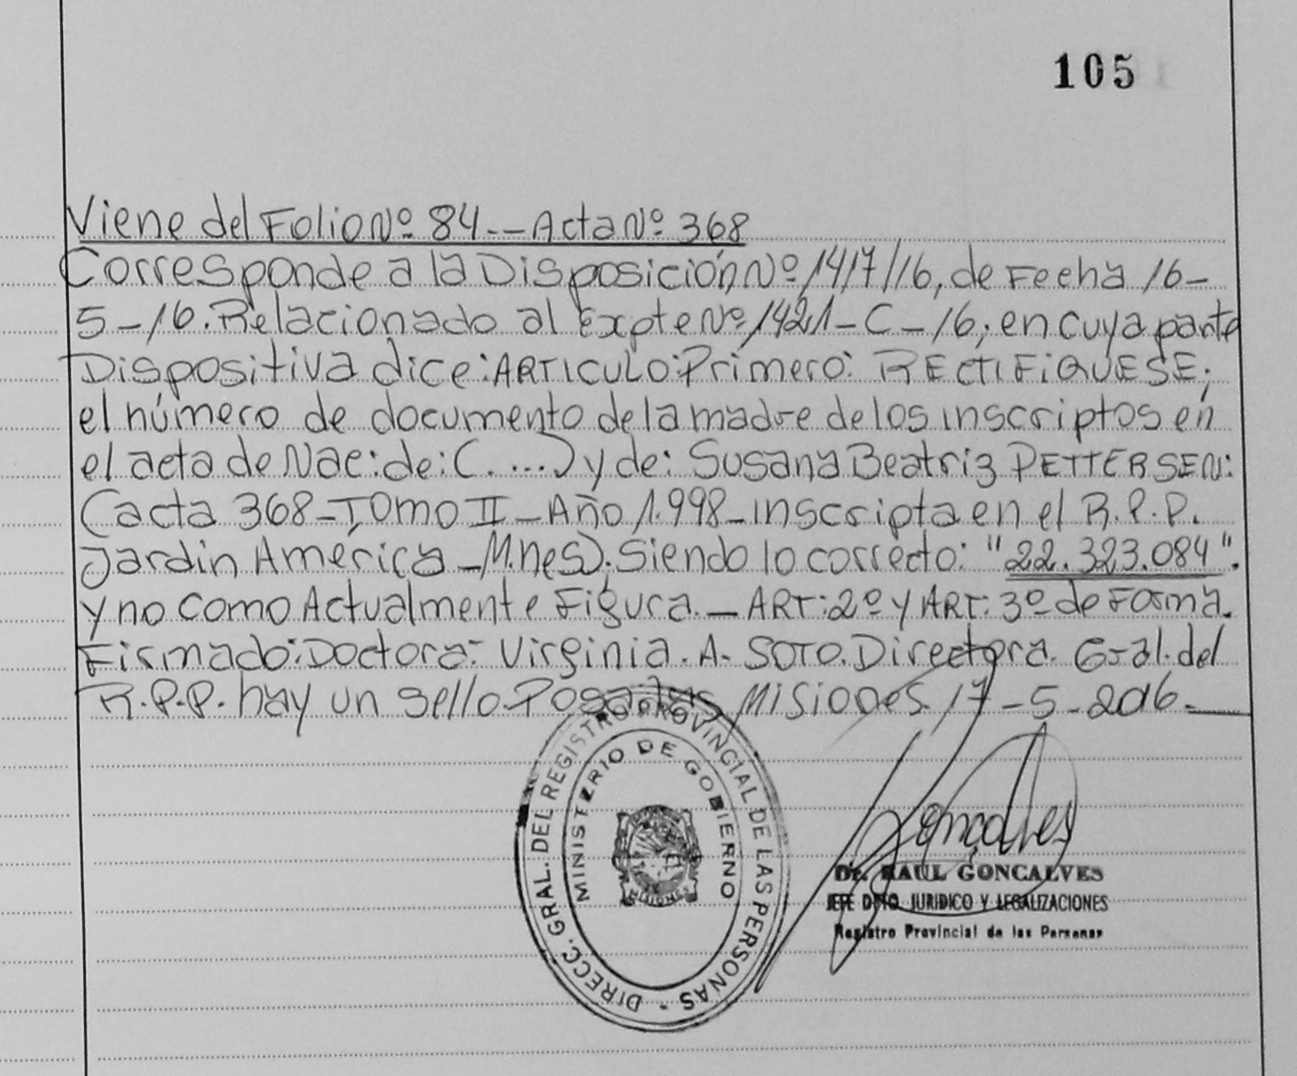 105
Viene del Folio Nº 84.-- Acta Nº 368
Corresponde a la Disposición Nº 1417/16, de Fecha 16-
5-16. Relacionado al Expte Nº 1421-C-16; en cuya parte
Dispositiva dice: ARTICULO: Primero: RECTIFIQUESE;
el número de documento de la madre de los inscriptos en
el acta de Nac: de: (....) y de: Susana Beatriz PETTERSEN:
(acta 368-Tomo II-Año 1.998-inscripta en el R.P.P.
Jardin América-M.nes). Siendo lo correcto: "22.323.084".
y no como Actualmente Figura.- ART: 2º y ART: 3º de Forma.
Firmado: Doctora: Virginia. A. SOTO. Directora. Gral. del
R.P.P. hay un sello Posadas, Misiones 17-5-2016.
DIRECC. GRAL. DEL REGISTRO PROVINCIAL DE LAS PERSONAS -
MINISTERIO DE GOBIERNO
MISIONES
Gonçalves
Dr. RAUL GONCALVES
JEFE DPTO. JURIDICO Y LEGALIZACIONES
Registro Provincial de las Personas